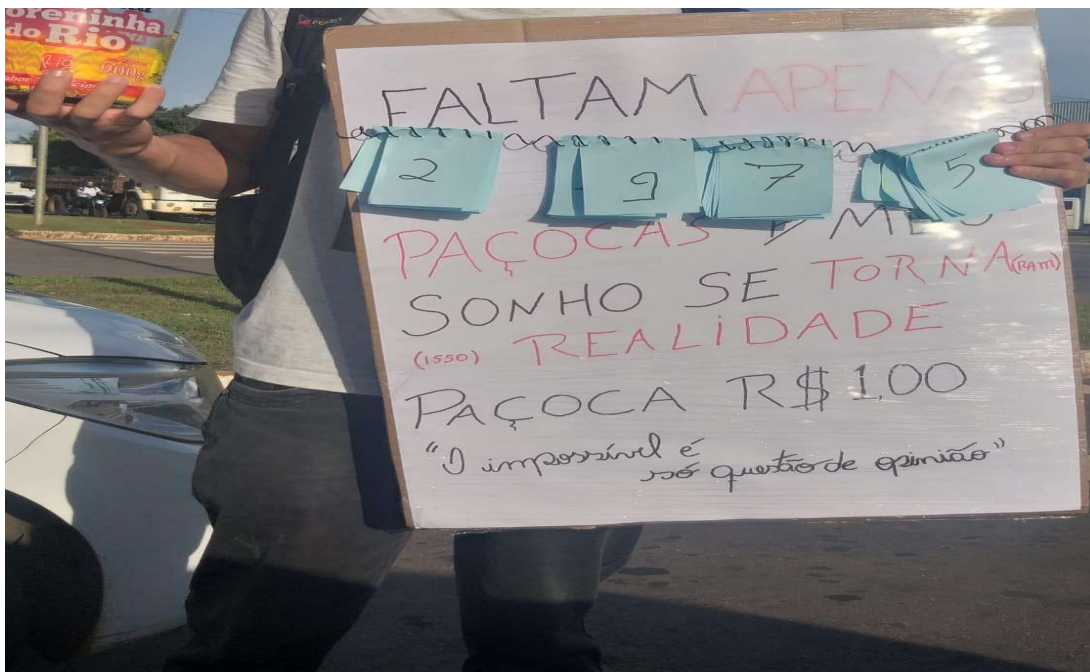 do Rio
900g
FALTAM APENAS
2 9 7 5
PAÇOCAS P/ MEU
SONHO SE TORNA(RAM)
(ISSO) REALIDADE
PAÇOCA R$ 1,00
"O impossível é
só questão de opinião"